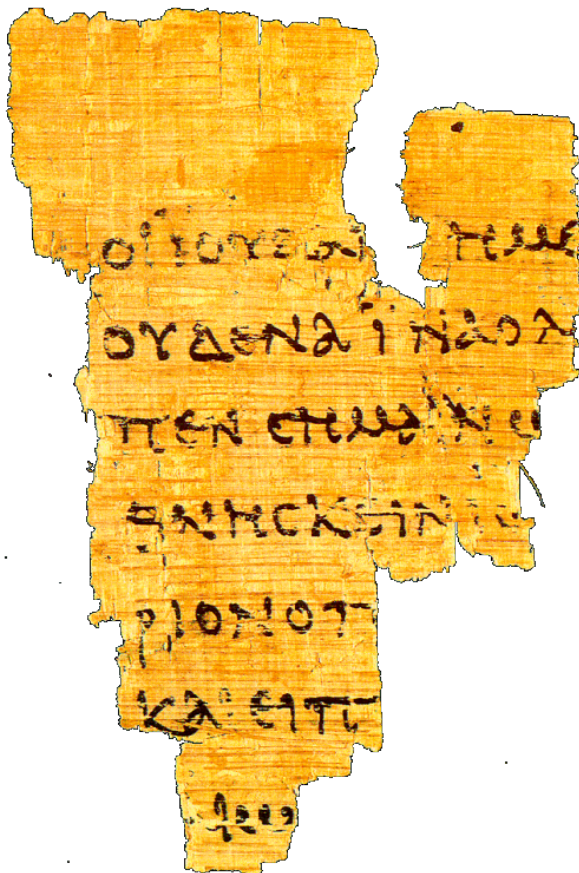 ΟΙ ΙΟΥΔΑΙ ΗΜΕ
ΟΥΔΕΝΑ ΙΝΑ Ο Λ
ΠΕΝ CΗΜΑΙΝΩ
ΘΝΗCΚΕΙΝ ΙC
ΡΙΟΝ Ο Π
ΚΑΙ ΕΙΠ
ΑΙΩ